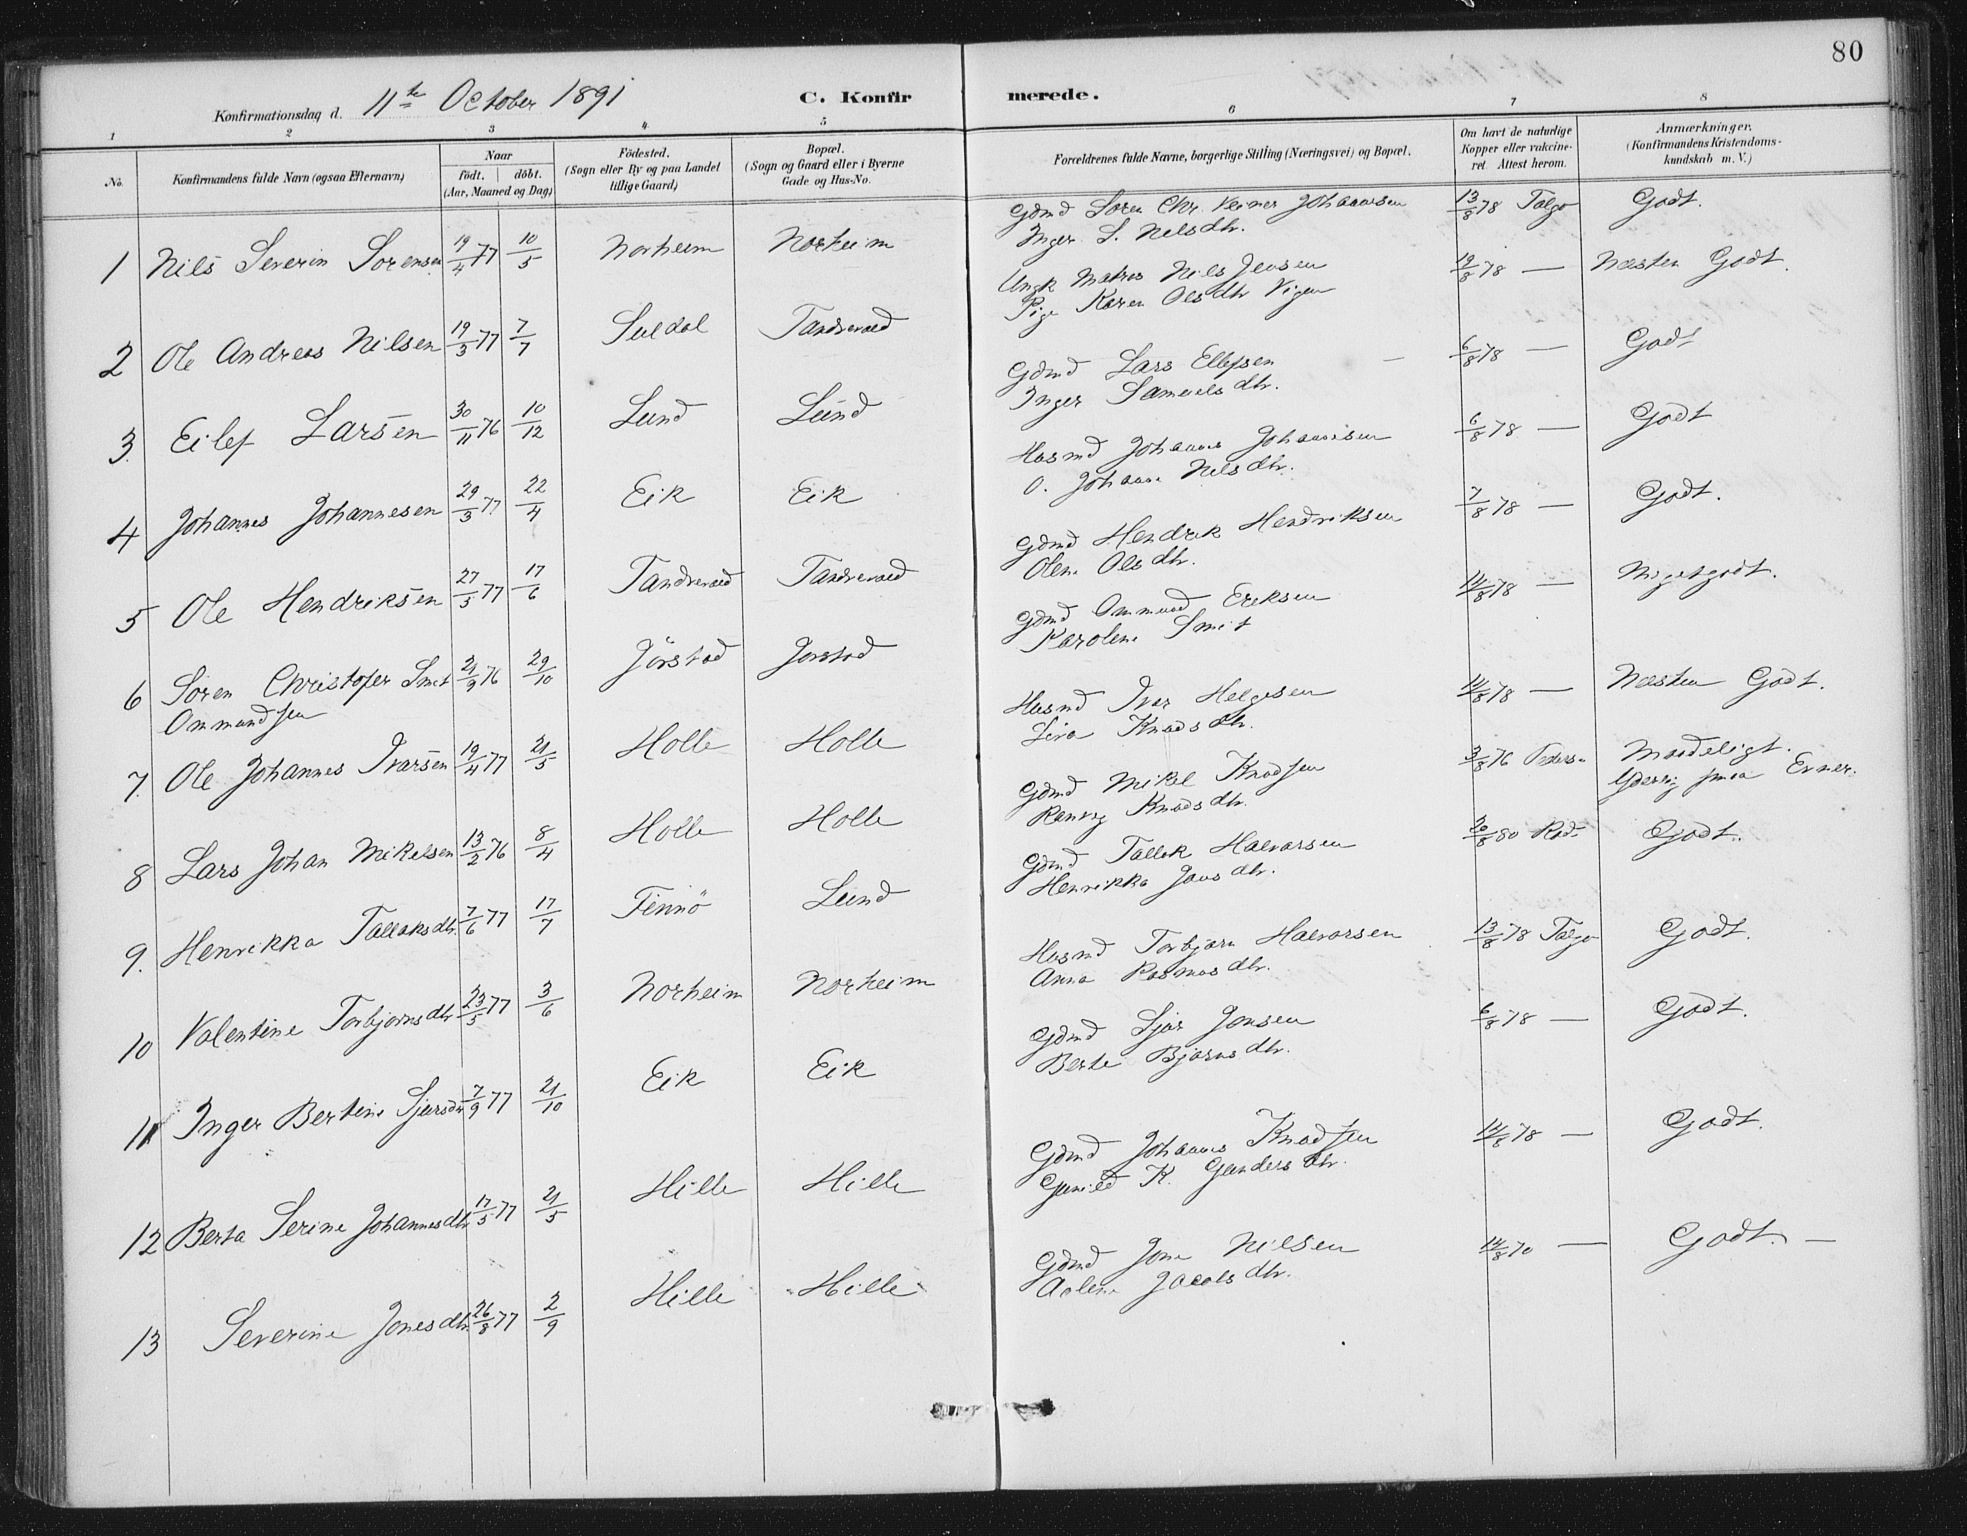 80
Konfirmationsdag d. 11te October 1891
C. Konfirmerede.
1 2 3 4 5 6 7 8
No.
Konfirmandens fulde Navn (ogsaa Efternavn)
Naar
födt. döbt.
(Aar, Maaned og Dag)
Födested.
(Sogn eller By og paa Landet
tillige Gaard)
Bopæl.
(Sogn og Gaard eller i Byerne
Gade og Hus-No.
Forældrenes fulde Navne, borgerlige Stilling (Næringsvei) og Bopæl.
Om havt de naturlige
Kopper eller vakcine-
ret Attest herom.
Anmærkninger.
(Konfirmandens Kristendoms-
kundskab m. V.)
1 Nils Severin Sörensen 19/4 77 10/5 Norheim Norheim Gdmd Sören Chr. Verner Johannsen 13/8 78 Talgö Godt.
Inger S. Nilsdtr.
2 Ole Andreas Nilsen 19/3 77 7/7 Suldal Tandrevold Ungk Matros Nils Jensen 19/8 78 — Næsten Godt.
Pige Karen Olsdtr Vigen
3. Eilef Larsen 30/11 76 10/12 Lund Lund Gdmd Lars Ellefsen 6/8 78 — Godt
Inger Samuelsdtr.
4 Johannes Johannesen 29/3 77 22/4 Eik Eik Husmd Johannes Johannesen 6/8 78 — Godt
O. Johanne Nilsdtr.
5 Ole Hendriksen 27/5 77 17/6 Tandrevold Tandrevold Gdmd Hendrik Hendriksen 7/8 78 — Godt.
Olene Olsdtr.
6 Sören Christofer Smit 21/9 76 29/10 Jörstad Jorstad Gdmd Ommund Eriksen 14/8 78 — Megetgodt.
Ommundsen Karolene Smit
7. Ole Johannes Ivarsen 19/4 77 21/5 Holle Holle Husmd Ivar Helgesen 14/8 78 — Næsten Godt.
Siva Knudsdtr.
8 Lars Johan Mikelsen 13/2 76 8/4 Holle Holle Gdmd Mikel Knudsen 3/8 76 Maadeligt.
Knudsdtr. Evner.
9. Henrikka Tallaksdtr. 7/6 77 17/7 Finnö Lund Gdmd Tallak Halvorsen 80 Godt.
Henrikka Jonsdtr.
10 Valentine Torbjornsdtr 23/5 77 3/6 Norheim Norheim Husmd Torbjörn Halvorsen 13/8 78 Talgö Godt.
Anna Rasmusdtr.
11 Inger Bertine Sjursdtr 7/9 77 21/10 Eik Eik Gdmd Sjur Jonsen 6/8 78 — Godt.
Berte Bjørnsdtr.
12 Berta Serine Johannesdtr 17/5 77 21/5 Hille Hille Gdmd Johannes Knudsen 14/8 78 — Godt.
Gunild K. Gundersdtr.
13 Severine Jonesdtr. 26/8 77 2/9 Hille Hille Gdmd Jone Nilsen 14/8 70 — Godt. —
Aolene Jacobsdtr.